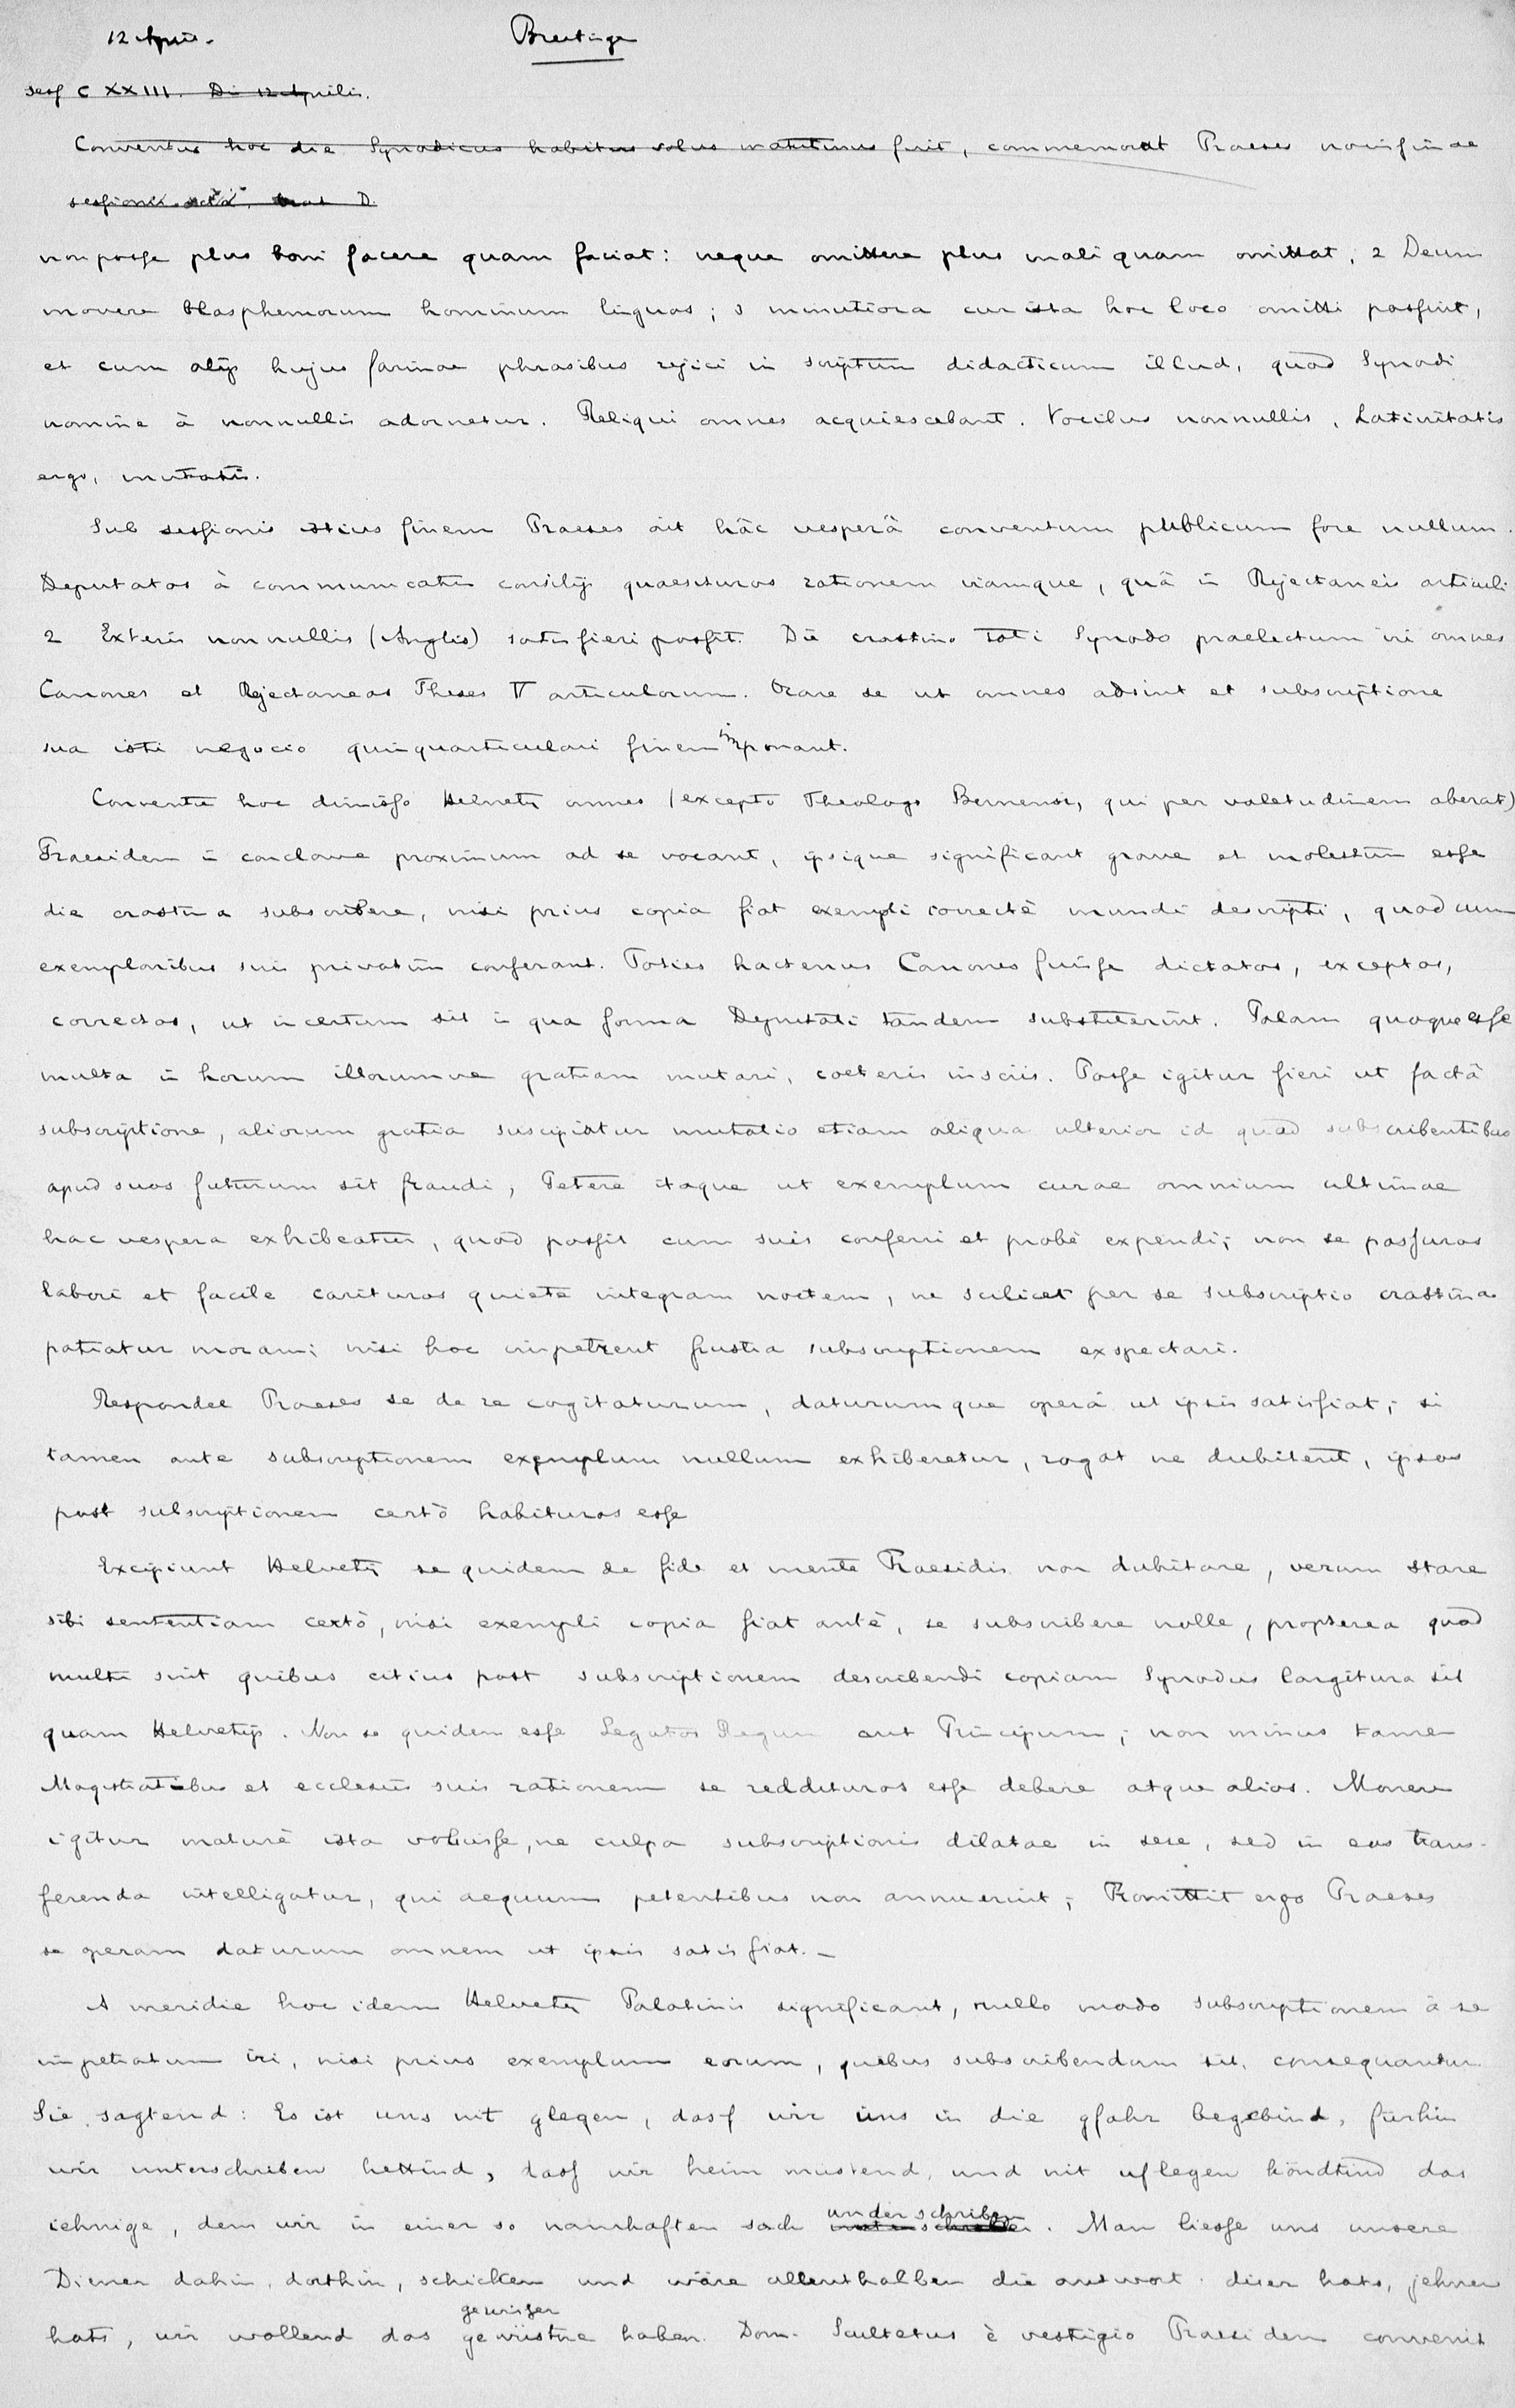 12 April. Breitinge
Sess CXXIII. Die 12 Aprilis.
Conventus hoc die Synodicus habitus solus matutinus fuit, commemorat Praeses novissimae
sessionis acta, erat D.
non posse plus boni facere quam faciat: neque omittere plus mali quam omittat, 2 Deum
movere blasphemorum hominum linguas; 3 minutiora cur ista hoc loco omitti possint,
et cum alijs hujus farinae phrasibus rejici in scriptum didacticum illud, quod Synodi
nomine à nonnullis adornetur. Reliqui omnes acquiescebant. Vocibus nonnullis, Latinitatis
ergo, mutatis.
Sub sessionis istius finem Praeses ait hâc vesperâ conventum publicum fore nullum.
Deputatos à communicatis consilijs quaesituros rationem viamque, quâ in Rejectaneis articuli
2 Exteris nonnullis (Anglis) satisfieri possit. Die crastino toti Synodo praelectum iri omnes
Canones et Rejectaneas Theses V articulorum. Orare se ut omnes adsint et subscriptione
sua isti negocio quinquarticulari finem imponant.
Conventu hoc dimisso Helvetij omnes (excepto Theologo Bernensi, qui per valetudinem aberat)
Praesidem in conclave proximum ad se vocant, ipsique significant grave et molestum esse
die crastina subscribere, nisi prius copia fiat exempli correctè mundi descripti, quod cum
exemplaribus suis privatim conferant. Toties hactenus Canones fuisse dictatos, exceptos,
correctos, ut incertum sit in qua forma Deputati tandem substiterint. Palam quoque esse
multa in horum illorumve gratiam mutari, coeteris insciis. Posse igitur fieri ut factâ
subscriptione, aliorum gratia suscipiatur mutatio etiam aliqua ulterior id quod subscribentibus
apud suos futurum sit fraudi, Petere itaque ut exemplum curae omnium ultimae
hac vespera exhibeatur, quod possit cum suis conferri et probè expendi; non se passuros
labori et facile carituros quiete integram noctem, ne scilicet per se subscriptio crastina
patiatur moram; nisi hoc impetrent frustra subscriptionem exspectari.
Respondet Praeses se de re cogitaturum, daturumque operâ ut ipsis satisfiat; si
tamen ante subscriptionem exemplum nullum exhiberetur, rogat ne dubitent, ipsos
post subscriptionem certò habituros esse
Excipiunt Helvetij se quidem de fide et mente Praesidis non dubitare, verum stare
sibi sententiam certò, nisi exempli copia fiat antè, se subscribere nolle, propterea quod
multi sint quibus citius post subscriptionem describendi copiam Synodus largitura sit
quam Helvetijs. Non se quidem esse Legatos Regum aut Principum; non minus tamen
Magistratibus et ecclesiis suis rationem se reddituros esse debere atque alios. Monere
igitur maturè ista voluisse, ne culpa subscriptionis dilatae in sese, sed in eos trans-
ferenda intelligatur, qui aequum petentibus non annuerint; Promittit ergo Praeses
se operam daturum omnem ut ipsis satisfiat. _
A meridie hoc idem Helvetij Palatinis significant, nullo modo subscriptionem à se
impetratum iri, nisi prius exemplum eorum, quibus subscribendum sit, consequantur.
Sie sagtend: Es ist uns nit glegen, dass wir uns in die gfahr begebind, fürhin
wir unterschriben hettind, dass wir heim müstend, und nit uflegen köndtind das
iehnige, dem wir in einer so namhaften sach underschriben. Man liesse uns unsere
Diener dahin, dorthin, schicken und wäre allenthalben die antwort. diser hats, jehner
hats, wir wollend das gewüsser haben. Dom. Scultetus è vestigio Praesidem convenit